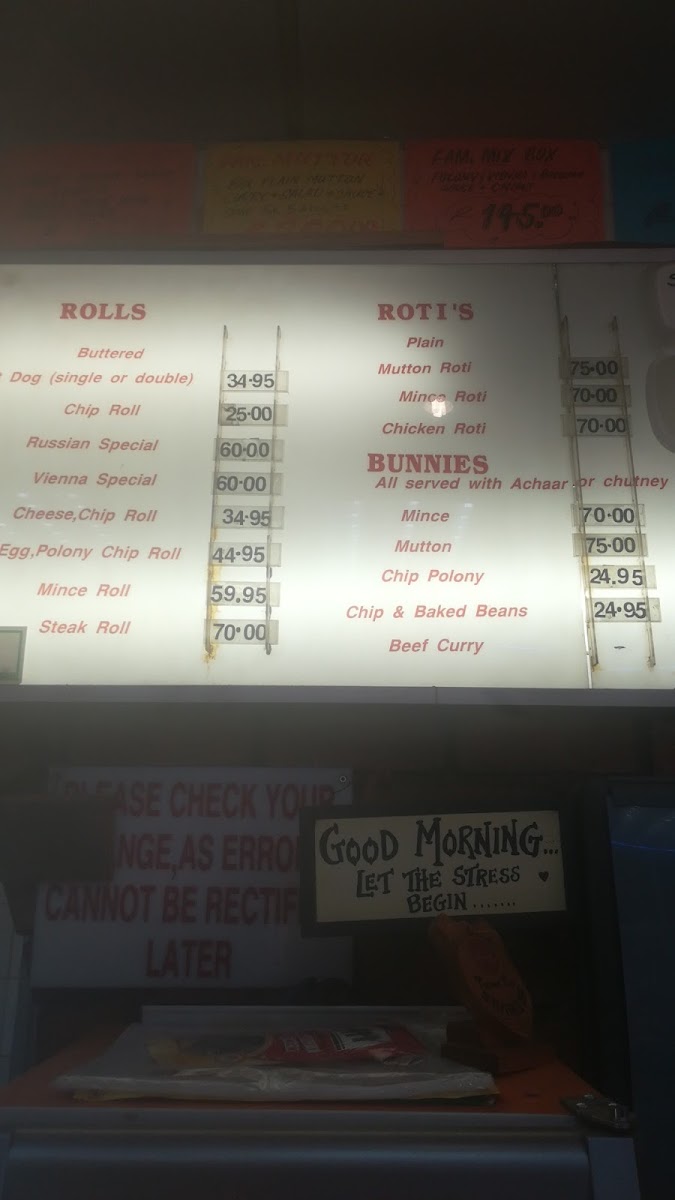 FAM. MIX BOX
195.00
ROLLS
Buttered
Dog (single or double) 34.95
Chip Roll 25.00
Russian Special 60.00
Vienna Special 60.00
Cheese,Chip Roll 34.95
Egg,Polony Chip Roll 44.95
Mince Roll 59.95
Steak Roll 70.00
ROTI'S
Plain
Mutton Roti 75.00
Mince Roti 70.00
Chicken Roti 70.00
BUNNIES
All served with Achaar or chutney
Mince 70.00
Mutton 75.00
Chip Polony 24.95
Chip & Baked Beans 24.95
Beef Curry -
PLEASE CHECK YOUR
CANNOT BE
LATER
GOOD MORNING...
LET THE STRESS
BEGIN.......